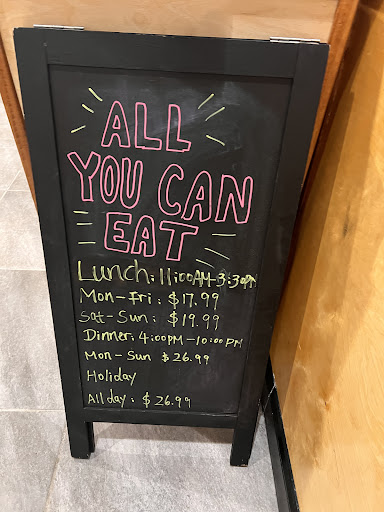 ALL
YOU CAN
EAT
Lunch: 11:00AM-3:30PM
Mon-Fri: $17.99
Sat-Sun: $19.99
Dinner: 4:00PM-10:00PM
Mon-Sun $26.99
Holiday
All day: $26.99